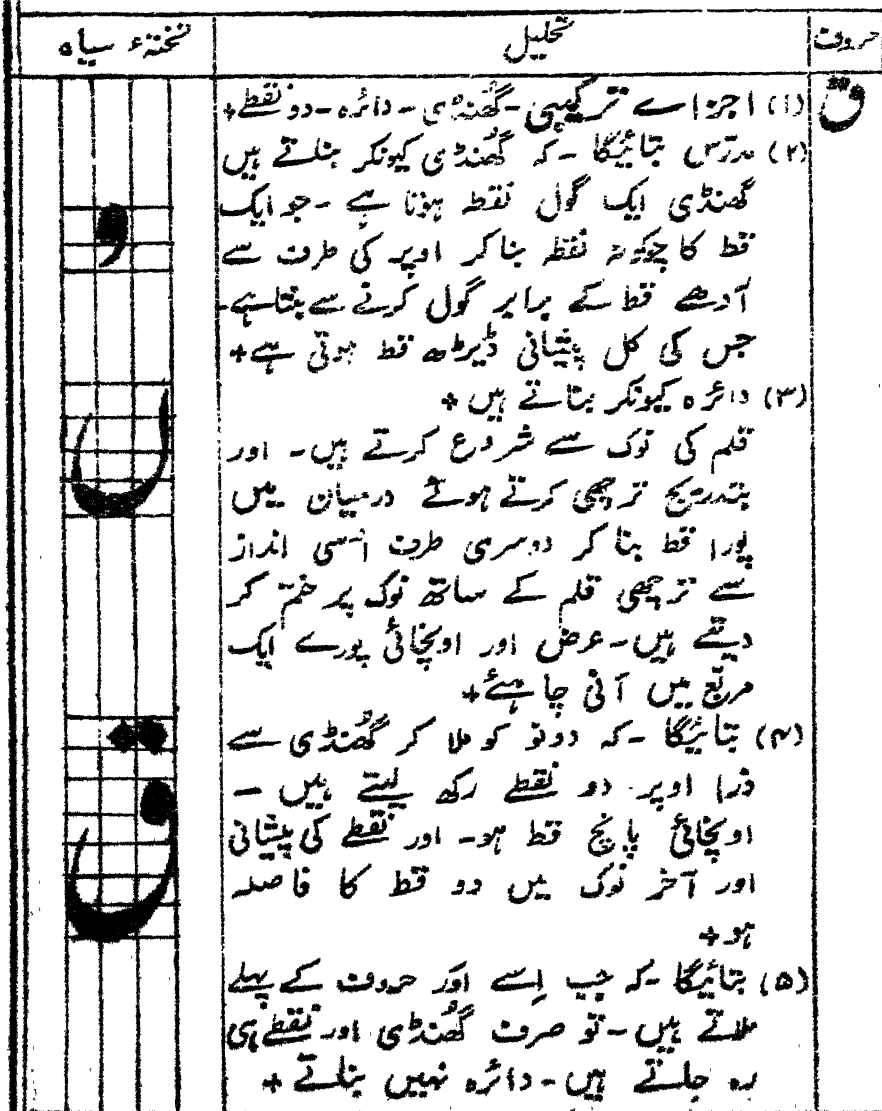 حروف تحلیل تختۂ سیاہ
ق (۱) اجزاے ترکیبی-گھُنڈی-دائرہ-دو نقطے+
(۲) مدرّس بتائیگا-کہ گھُنڈی کیونکر بناتے ہیں
گھنڈی ایک گول نقطہ ہوتا ہے-جو ایک
قط کا چوکونہ نقطہ بنا کر اوپر کی طرف سے
آدھے قط کے برابر گول کرنے سے بنتا ہے-
جس کی کل پیشانی ڈیڑھ قط ہوتی ہے+
(۳) دائرہ کیونکر بناتے ہیں+
قلم کی نوک سے شروع کرتے ہیں- اور
بتدریج ترچھی کرتے ہوئے درمیان میں
پورا قط بنا کر دوسری طرف اُسی انداز
سے ترچھی قلم کے ساتھ نوک پر ختم کر
دیتے ہیں-عرض اور اونچائی پورے ایک
مربّع میں آنی چاہئے+
(۴) بتائیگا-کہ دونو کو ملا کر گھُنڈی سے
ذرا اوپر دو نقطے رکھ لیتے ہیں-
اونچائی پانچ قط ہو- اور نقطے کی پیشانی
اور آخر نوک میں دو قط کا فاصلہ
ہو+
(۵) بتائیگا-کہ جب اِسے اَور حروف کے پہلے
ملاتے ہیں-تو صرف گھُنڈی اور نقطے ہی
رہ جاتے ہیں-دائرہ نہیں بناتے+